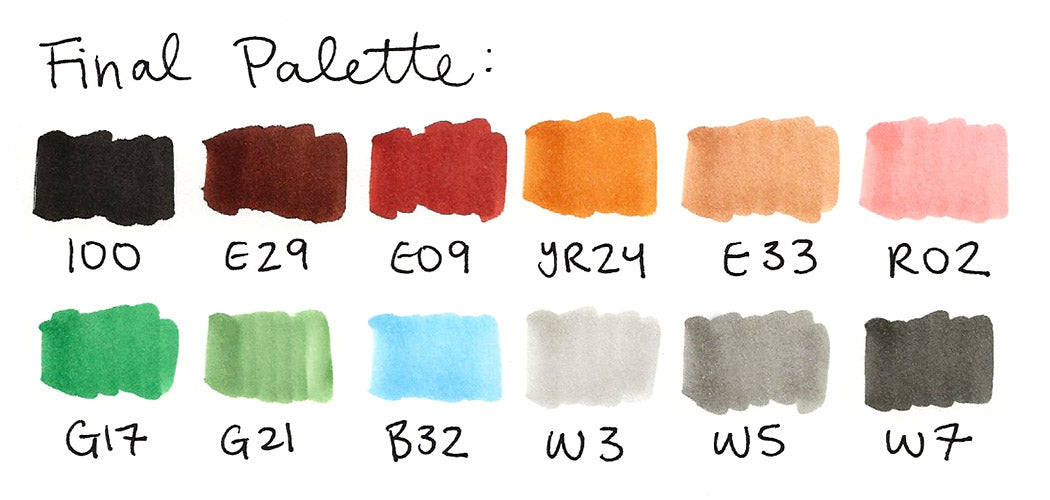 Final Palette:
100 E29 E09 YR24 E33 R02
G17 G21 B32 W3 W5 W7